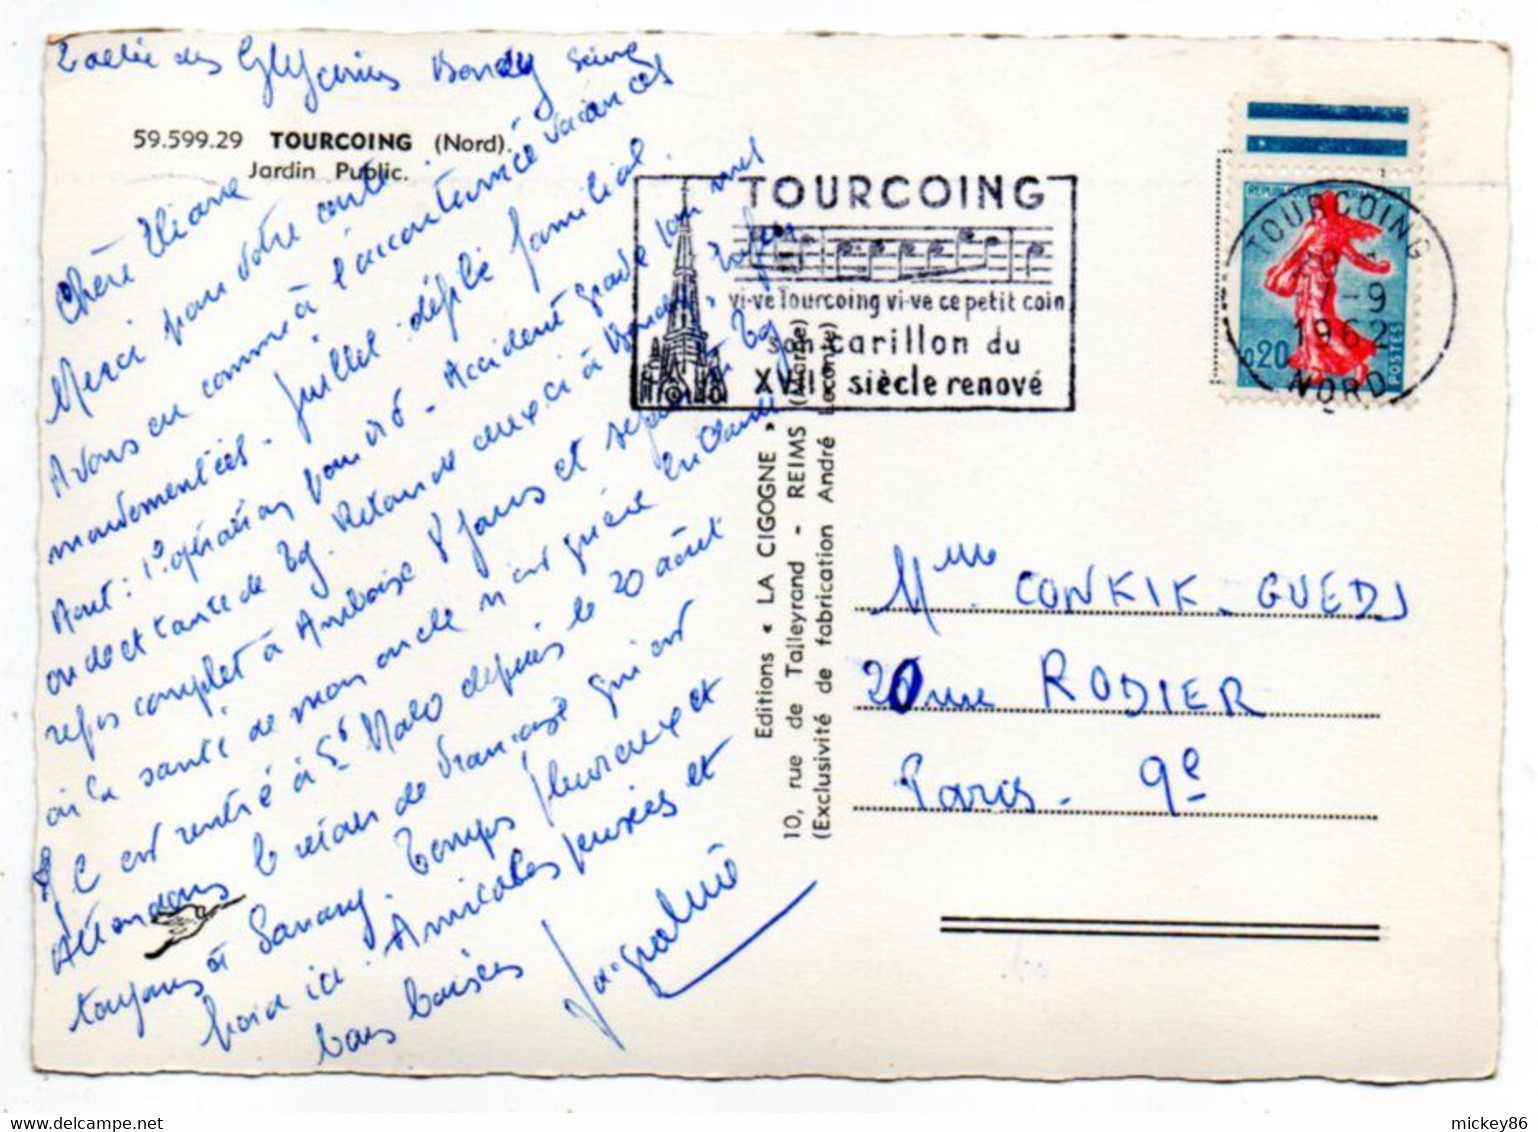 allée des Glycines Bondy Seine
59.599.29 TOURCOING (Nord).
Jardin Public.
Chère Eliane
Merci pour votre carte
Avons eu comme à l'accoutumée vacances
mouvementées. Juillet défilé familial.
Août: 1° opération pour Accident grave pour
de Retour de à Bondy,
repos complet à Amboise 8 jours et
où la santé de mon oncle n'est guère brillante
Il est rentré à St Malo depuis le 20 août
Attendons le retour de Françoise qui est
toujours à Sanary. Temps pluvieux et
froid ici. Amicales pensées et
bons baisers Jacqueline
TOURCOING
vi-ve Tourcoing vi-ve ce petit coin
son carillon du
XVIIe siècle renové
REPUBLIQUE FRANÇAISE
0,20
POSTES
TOURCOING
7-9
1962
NORD
Editions « LA CIGOGNE »
10, rue de Talleyrand - REIMS (Marne)
(Exclusivité de fabrication André Leconte)
Mme CONKIK-GUEDJ
20 rue RODIER
Paris - 9e
mickey86